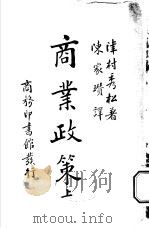 津村秀松著
陳家瓚譯
商業政策上
商務印書館發行
www.toowiki.com